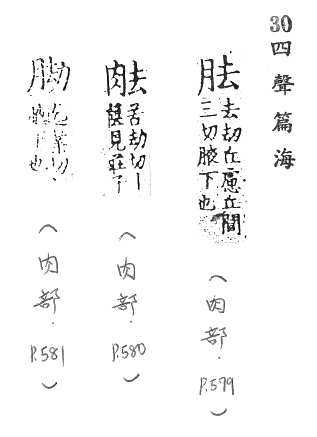 30四聲篇海
胠
去劫丘慮丘閭
三切腋下也
(肉部.P.579)
苦劫切丨
篋見莊子
(肉部.P.580)
業切
下也
(肉部.P.581)